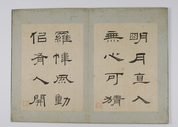 明月直入
無心可猜
羅幃風動
佀有人開